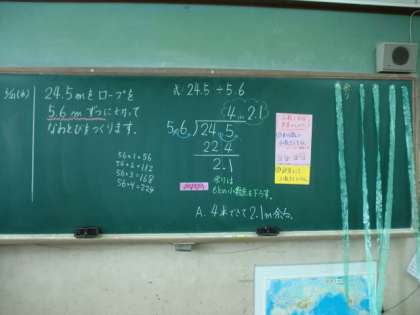 24.5mのロープを
5.6mずつとって
なわとびをつくります。
56×1=56
56×2=112
56×3=168
56×4=224
式 24.5÷5.6
4 … 2.1
5.6)24.5
224
2.1
余りは
もとの小数点を下ろす。
A. 4本できて2.1m余る。